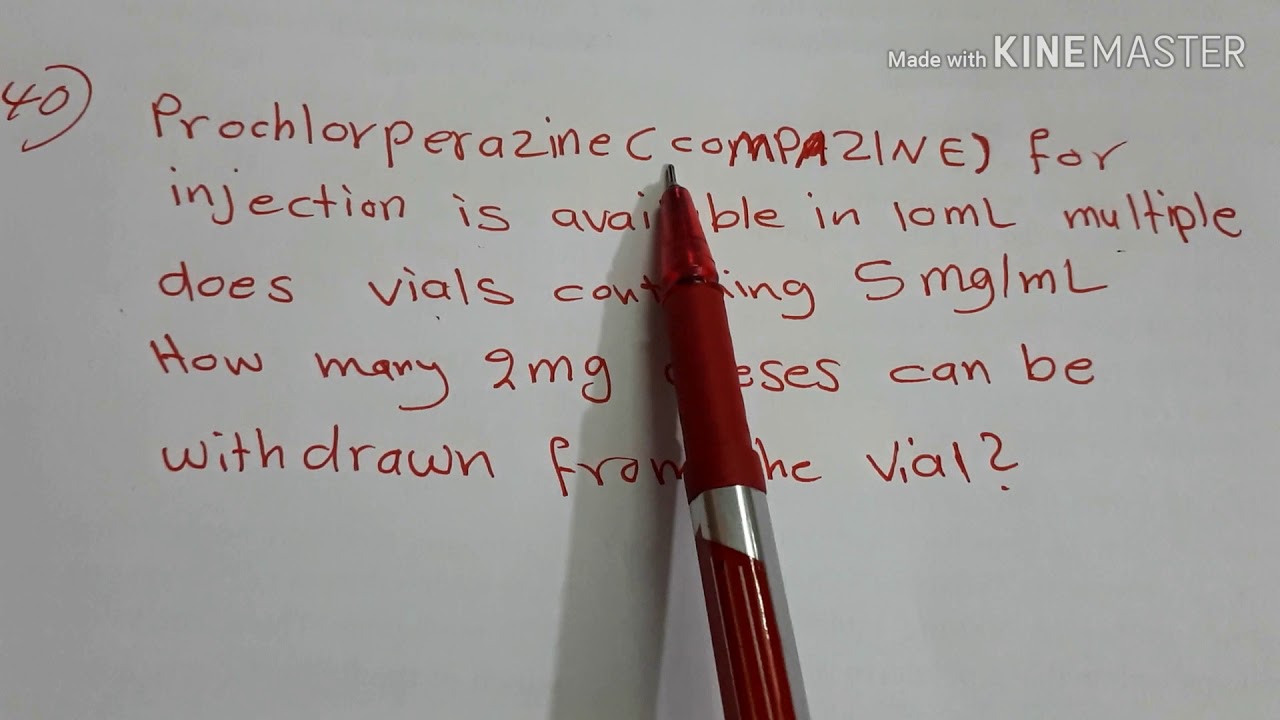 Made with KINEMASTER
40) Prochlorperazine (COMPAZINE) for
injection is available in 10mL multiple
does vials containing 5mg/mL
How many 2mg can be
withdrawn from the vial?